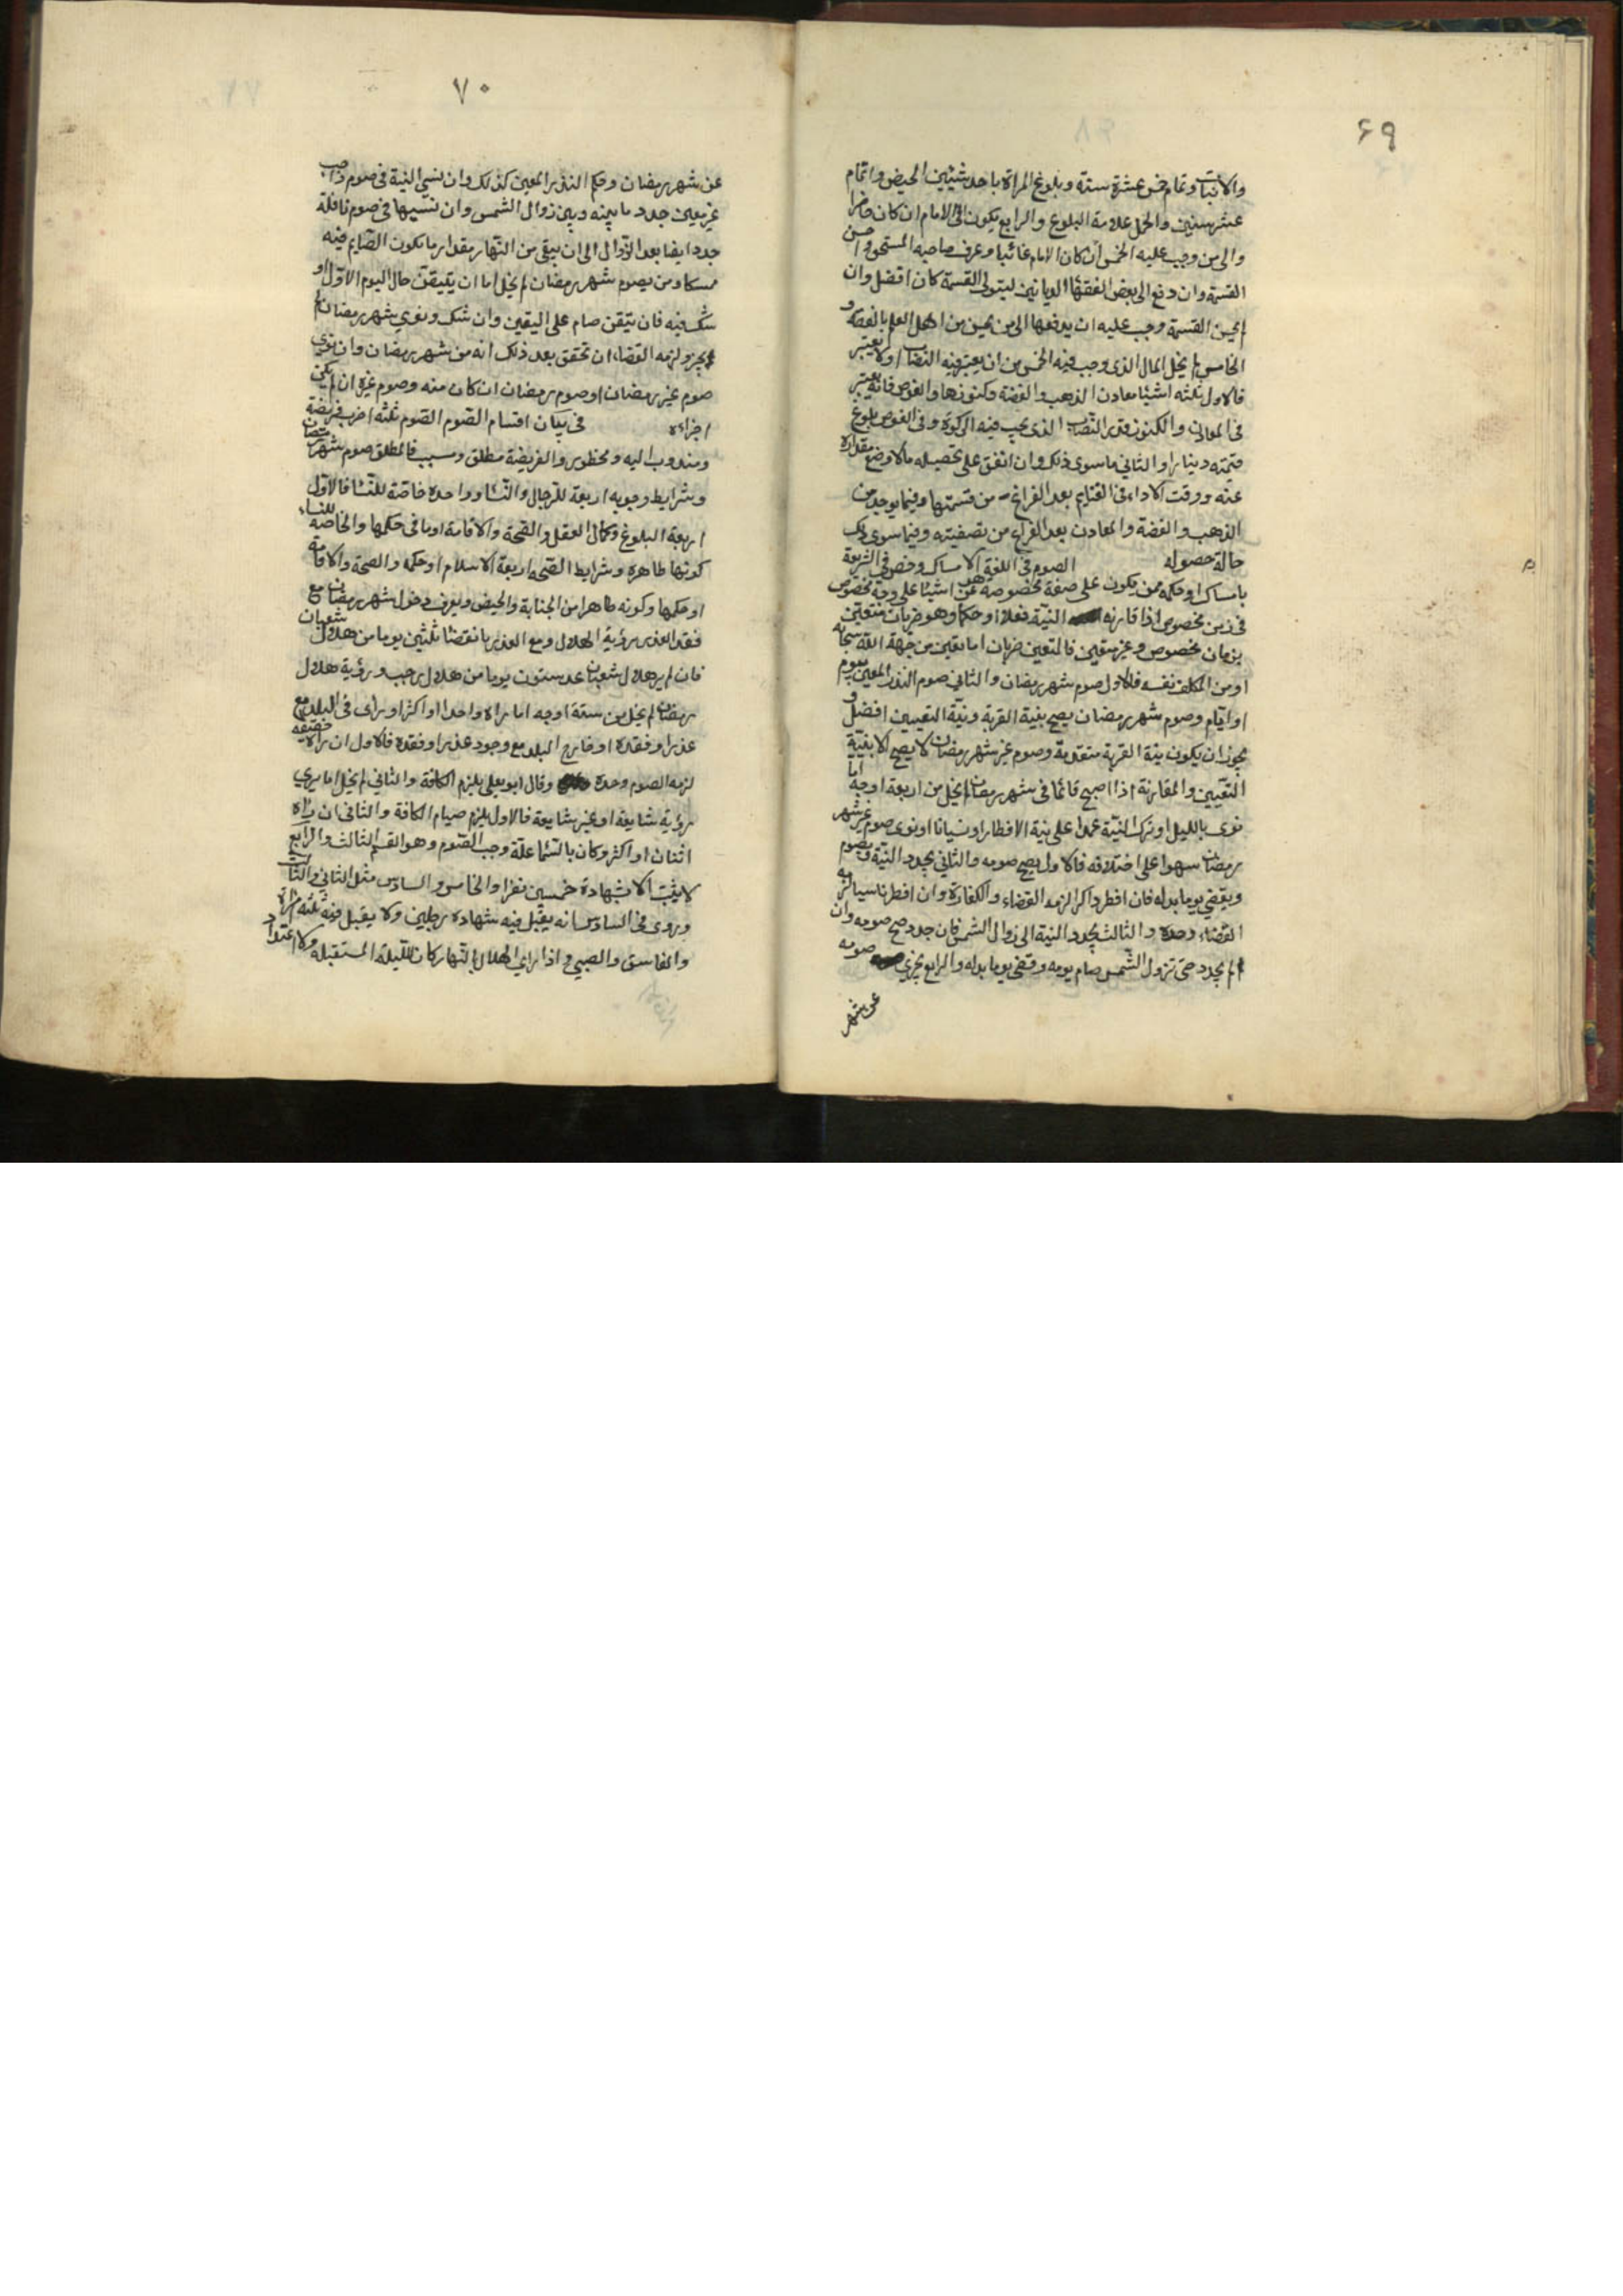 ۶۹
والانبات وتمام خمس عشرة سنة وبلوغ المراة باحد شيئين الحيض واتمام
عشر سنين والحمل علامة البلوغ والرابع يكون الى الامام ان كان حاضرا
والى من وجب عليه الخمس ان كان الامام غائبا وعرف صاحبه المستحق واحسن
القسمة وان دفع الى بعض الفقهاء الديانين ليتولى القسمة كان افضل وان
لم يحسن القسمة وجب عليه ان يدفعها الى من يحسن من اهل العلم بالفقه و
الخامس لم يخل المال الذى وجب فيه الخمس من ان يعتبر فيه النصاب او لا يعتبر
فالاول ثلثه اشيا معادن الذهب والفضة وكنوزها والغوص فانه يعتبر
فى المعادن والكنوز قدر النصاب الذى يجب فيه الزكوة وفى الغوص بلوغ
قيمته دينارا والثاني ما سوى ذلك وان انفق على تحصيله مالا وضع مقداره
عنه ووقت الاداء فى الغنايم بعد الفراغ من قسمتها وفيما يوجد من
الذهب والفضة والمعادن بعد الفراغ من تصفيته وفيما سوى ذلك
حالة حصوله الصوم فى اللغة الامساك وخص فى الشريعة
بامساك او حكمه ممن يكون على صفة مخصوصة عن اشيا على وجه مخصوص
فى زمن مخصوص اذا قارنه النية فعلا او حكما وهو ضربان متعين
بزمان مخصوص وغير متعين فالمتعين ضربان اما تعين من جهة الله سبحانه
او من المكلف نفسه فالاول صوم شهر رمضان والثاني صوم النذر المعين بيوم
او ايام وصوم شهر رمضان يصح بنية القربة ونية التعيين افضل و
يجوز ان يكون نية القربة متقدمة وصوم غير شهر رمضان لا يصح الا بنية
التعيين والمقارنة اذا اصبح قائما فى شهر رمضان لم يخل من اربعة اوجه اما
نوى بالليل او ترك النية عمدا على نية الافطار او نسيانا او نوى صوم غير شهر
رمضان سهوا على اختلافه فالاول يصح صومه والثاني يجدد النية ويصوم
ويقضي يوما بدله فان افطر ذاكرا لزمه القضاء والكفارة وان افطر ناسيا لزمه
القضاء وحده والثالث يجدد النية الى زوال الشمس فان جدد صح صومه وان
لم يجدد حتى تزول الشمس صام يومه وقضى يوما بدله والرابع يجزي صومه
عن شهر
۷۰
عن شهر رمضان وحكم النذر المعين كذلك وان نسي النية فى صوم واجب
غير معين جدد ما بينه وبين زوال الشمس وان نسيها فى صوم نافلة
جدد ايضا بعد الزوال الى ان يبقى من النهار مقدار ما يكون الصايم فيه
ممسكا ومن يصوم شهر رمضان لم يخل اما ان يتيقن حال اليوم الاول او
شك فيه فان تيقن صام على اليقين وان شك ونوى شهر رمضان لم
يجز ولزمه القضاء ان تحقق بعد ذلك انه من شهر رمضان وان نوى
صوم غير رمضان او صوم رمضان ان كان منه وصوم غيره ان لم يكن
اجزاه فى بيان اقسام الصوم الصوم ثلثه اضرب فريضة
ومندوب اليه ومحظور والفريضة مطلق ومسبب فالمطلق صوم شهر رمضان
وشرايط وجوبه اربعة للرجال والنساء وواحدة خاصة للنساء فالاول
اربعة البلوغ وكمال العقل والصحة والاقامة او ما فى حكمها والخاصة للنساء
كونها طاهرة وشرايط الصحه اربعة الاسلام او حكمه والصحة والاقامة
او حكمها وكونه طاهرا من الجنابة والحيض ويعرف دخول شهر رمضان مع
فقد العذر برؤية الهلال ومع العذر بانقضاء ثلثين يوما من هلال شعبان
فان لم ير هلال شعبان عد ستون يوما من هلال رجب ورؤية هلال
رمضان لم يخل من ستة اوجه اما راه واحدا او اكثر او رأى فى البلد مع
عذر او فقده او خارج البلد مع وجود عذر او فقده فالاول ان راه حقيقة
لزمه الصوم وحده وقال ابو يعلى يلزم الكافة والثاني لم يخل اما يرى
رؤية شايعة او غير شايعة فالاول يلزم صيام الكافة والثاني ان راه
اثنان او اكثر وكان بالسماء علة وجب الصوم وهو القسم الثالث والرابع
لا يثبت الا بشهادة خمسين نفرا والخامس والسادس مثل الثاني والثالث
وروى فى السادس انه يقبل فيه شهادة رجلين ولا يقبل فيه ثلثه المراة
والفاسق والصبي واذا راى الهلال بالنهار كان لليلة المستقبلة ولا اعتداد